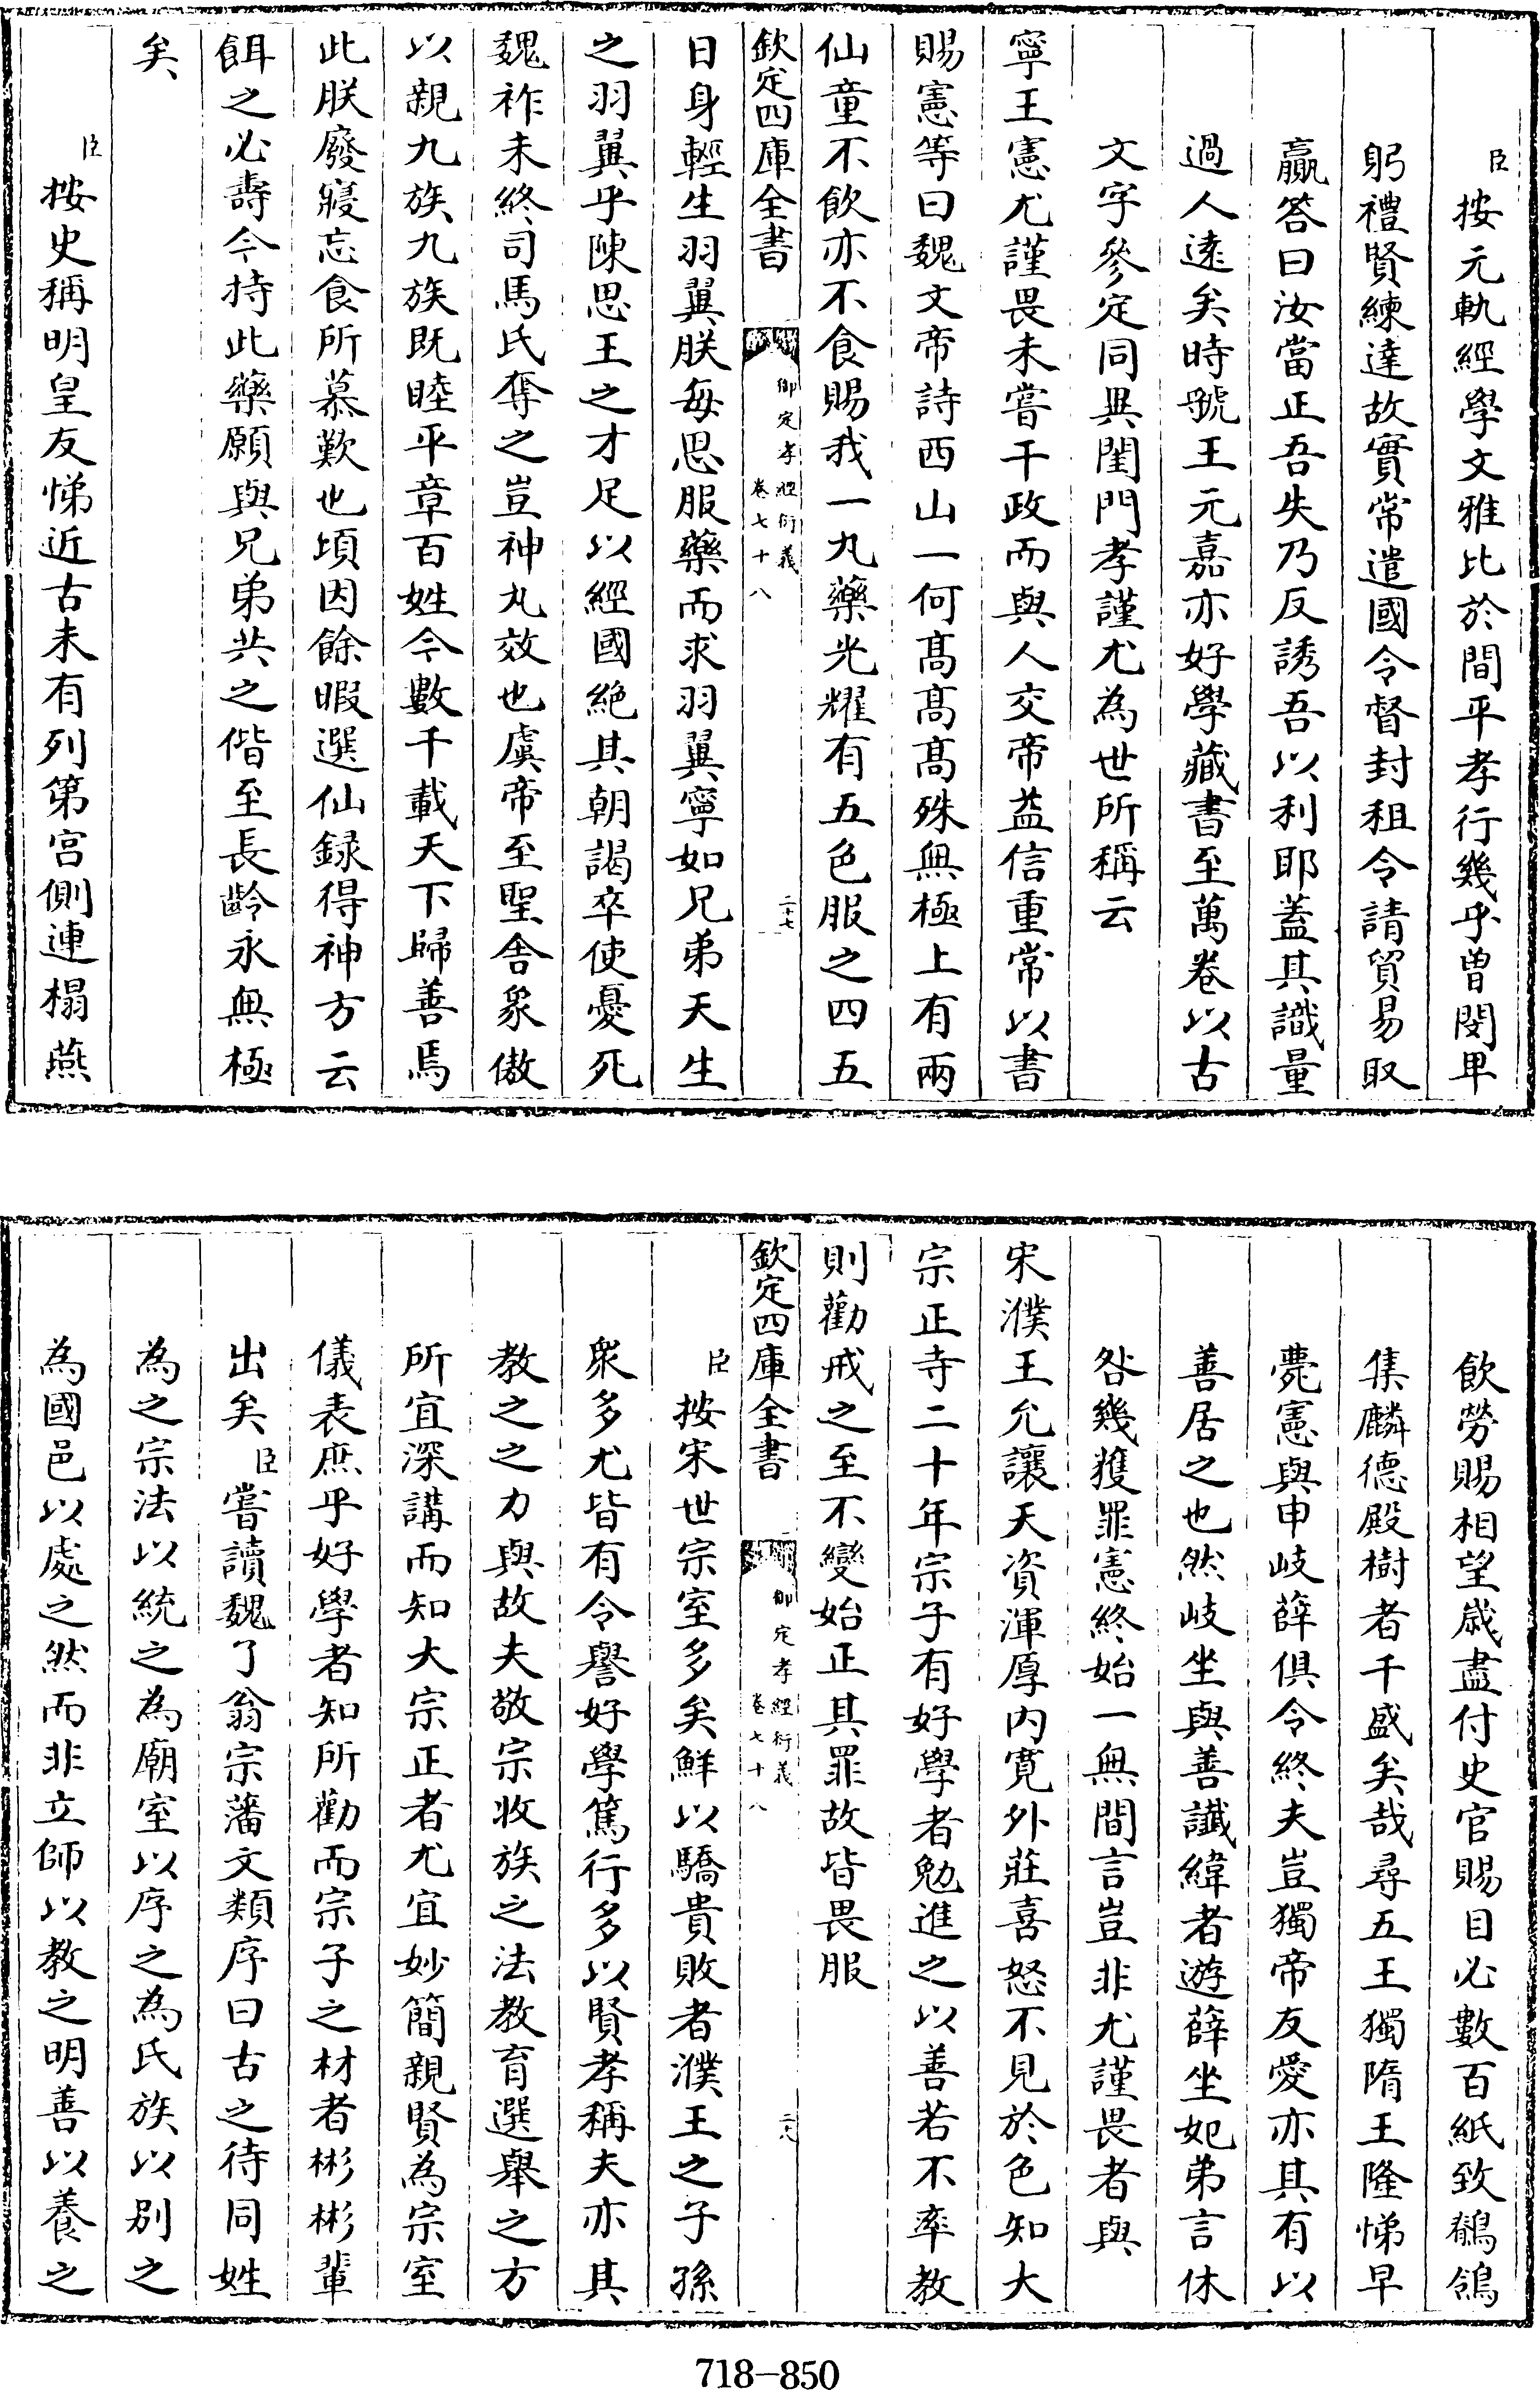 臣按元軌經學文雅比於間平孝行幾乎曾閔卑
躬禮賢練達故實常遣國令督封租令請貿易取
贏答曰汝當正吾失乃反誘吾以利耶蓋其識量
過人遠矣時虢王元嘉亦好學藏書至萬卷以古
文字參定同異閨門孝謹尤為世所稱云
寧王憲尤謹畏未嘗干政而與人交帝益信重常以書
賜憲等曰魏文帝詩西山一何髙髙髙殊無極上有兩
仙童不飲亦不食賜我一丸藥光耀有五色服之四五
欽定四庫全書
御定孝經衍義
卷七十八
二十七
日身輕生羽翼朕每思服藥而求羽翼寧如兄弟天生
之羽翼乎陳思王之才足以經國絶其朝謁卒使憂死
魏祚未終司馬氏奪之豈神丸效也虞帝至聖舍象傲
以親九族九族既睦平章百姓今數千載天下歸善焉
此朕廢寢忘食所慕歎也頃因餘暇選仙録得神方云
餌之必壽今持此藥願與兄弟共之偕至長齡永無極
矣
臣按史稱明皇友悌近古未有列第宫側連榻燕
飲勞賜相望歲盡付史官賜目必數百紙致鶺鴒
集麟德殿樹者千盛矣哉尋五王獨隋王隆悌早
薨憲與申岐薛俱令終夫豈獨帝友愛亦其有以
善居之也然岐坐與善讖緯者遊薛坐妃弟言休
咎幾獲罪憲終始一無間言豈非尤謹畏者與
宋濮王允讓天資渾厚内寛外莊喜怒不見於色知大
宗正寺二十年宗子有好學者勉進之以善若不率教
則勸戒之至不變始正其罪故皆畏服
欽定四庫全書
御定孝經衍義
卷七十八
二十八
臣按宋世宗室多矣鮮以驕貴敗者濮王之子孫
衆多尤皆有令譽好學篤行多以賢孝稱夫亦其
教之之力與故夫敬宗收族之法教育選舉之方
所宜深講而知大宗正者尤宜妙簡親賢為宗室
儀表庶乎好學者知所勸而宗子之材者彬彬輩
出矣臣嘗讀魏了翁宗藩文類序曰古之待同姓
為之宗法以統之為廟室以序之為氏族以别之
為國邑以處之然而非立師以教之明善以養之
718-850